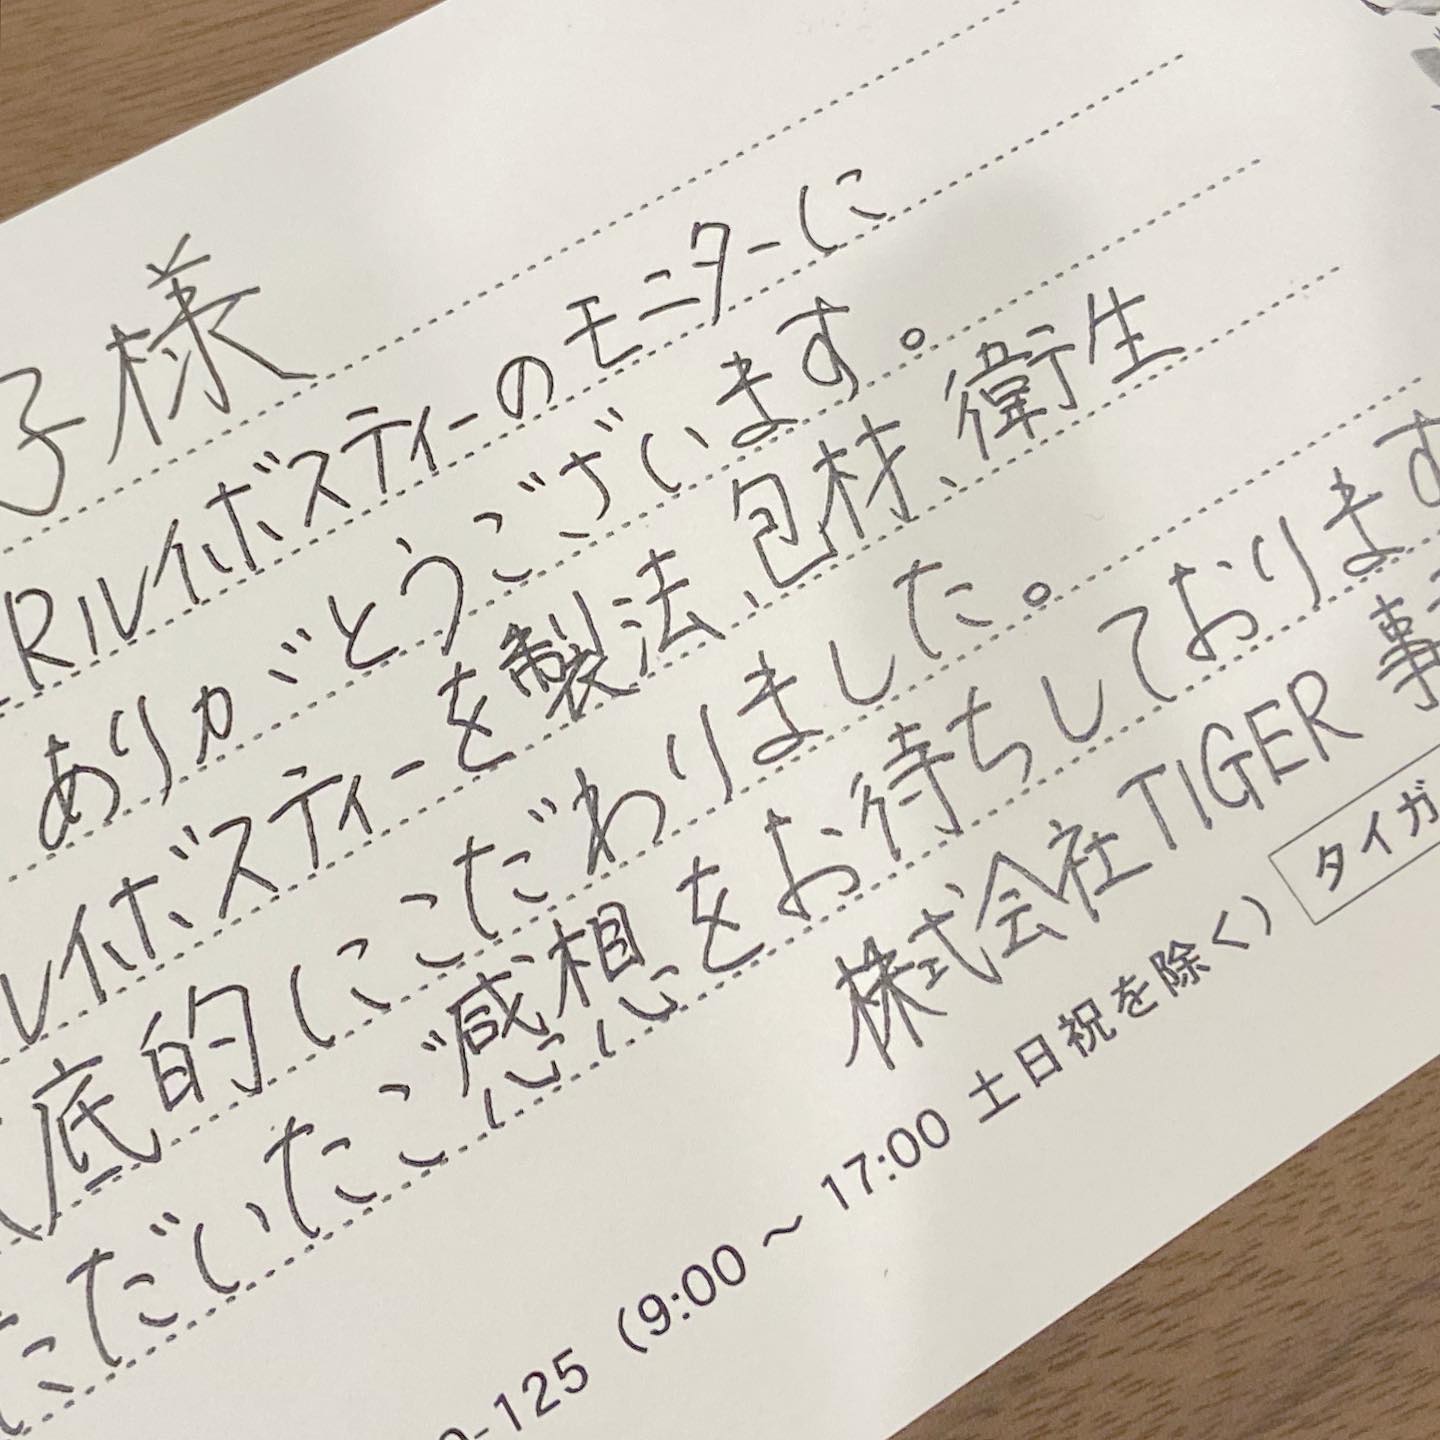 子様
Rルイボスティーのモニターに
ありがとうございます。
ルイボスティーを製法、包材、衛生
底的にこだわりました。
ただいたご感想をお待ちしております
株式会社TIGER 事
0-125 (9:00 ～ 17:00 土日祝を除く) タイガ